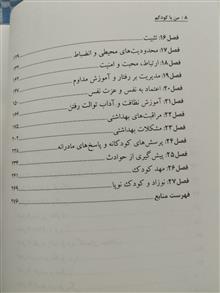 ۸ / من یا کودکم
فصل۱۶: تثبیت
فصل۱۷: محدودیت‌های محیطی و انضباط
فصل۱۸: ارتباط، محبت و امنیت
فصل۱۹: مدیریت بر رفتار و آموزش مداوم
فصل۲۰: اعتماد به نفس و عزت نفس
فصل۲۱: آموزش نظافت و آداب توالت رفتن
فصل۲۲: مراقبت‌های بهداشتی
فصل۲۳: مشکلات بهداشتی
فصل۲۴: پرسش‌های کودکانه و پاسخ‌های مادرانه
فصل۲۵: پیش‌گیری از حوادث
فصل۲۶: مهد کودک
فصل۲۷: نوزاد و کودک نوپا
فهرست منابع